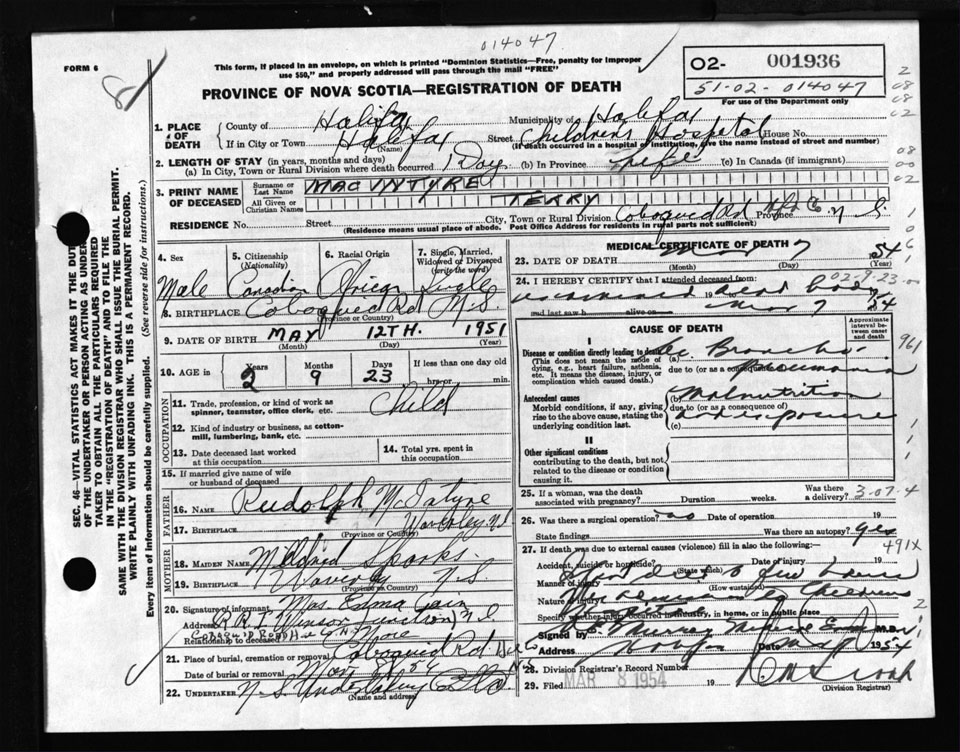 014047
FORM 6
This form, if placed in an envelope, on which is printed "Dominion Statistics—Free, penalty for improper
use $50," and properly addressed will pass through the mail "FREE"
O2- 001936
51-02-014047
For use of the Department only
PROVINCE OF NOVA SCOTIA—REGISTRATION OF DEATH
1. PLACE OF DEATH
County of Halifax Municipality of Halifax
If in City or Town Halifax (Name) Street Children's Hospital House No.
(If death occurred in a hospital or institution, give the name instead of street and number)
2. LENGTH OF STAY (in years, months and days)
(a) In City, Town or Rural Division where death occurred 1 Day (b) In Province Life (c) In Canada (if immigrant)
3. PRINT NAME OF DECEASED
Surname or Last Name MACINTYRE
All Given or Christian Names TERRY
RESIDENCE No. Street City, Town or Rural Division Cobequid Rd Province N S
(Residence means usual place of abode. Post Office Address for residents in rural parts not sufficient)
4. Sex Male
5. Citizenship (Nationality) Canadian
6. Racial Origin African
7. Single, Married, Widowed or Divorced (write the word) Single
8. BIRTHPLACE Cobequid Rd N.S.
(Province or Country)
9. DATE OF BIRTH MAY 12TH. 1951
(Month) (Day) (Year)
10. AGE in Years 2 Months 9 Days 23 If less than one day old hrs. or min.
OCCUPATION
11. Trade, profession, or kind of work as spinner, teamster, office clerk, etc. Child
12. Kind of industry or business, as cotton-mill, lumbering, bank, etc.
13. Date deceased last worked at this occupation
14. Total yrs. spent in this occupation
15. If married give name of wife or husband of deceased
FATHER
16. NAME Rudolph McIntyre
17. BIRTHPLACE Waverley N S
(Province or Country)
MOTHER
18. MAIDEN NAME Mildred Sparks
19. BIRTHPLACE Waverley N.S.
(Province or Country)
20. Signature of informant Mrs. Edna Cain
Address R.R.1 Winsor Junction N S
Relationship to deceased None
21. Place of burial, cremation or removal Cobequid Rd
Date of burial or removal Mar 54
22. UNDERTAKER N-S. Undertaking Co Ltd
(Name and address)
MEDICAL CERTIFICATE OF DEATH
23. DATE OF DEATH Mar 7 1954
(Month) (Day) (Year)
24. I HEREBY CERTIFY that I attended deceased from: 02-9-23
examined 19 dead body
and last saw h alive on Mar 7 54
CAUSE OF DEATH
Approximate interval between onset and death
I
Disease or condition directly leading to death
(This does not mean the mode of dying, e.g., heart failure, asthenia, etc. It means the disease, injury, or complication which caused death.)
(a) Broncho-pneumonia
due to (or as a consequence of)
Antecedent causes
Morbid conditions, if any, giving rise to the above cause, stating the underlying condition last.
(b) Malnutrition
due to (or as a consequence of)
(c) and exposure
II
Other significant conditions
contributing to the death, but not related to the disease or condition causing it.
25. If a woman, was the death associated with pregnancy? Duration weeks. Was there a delivery? 3-07-4
26. Was there a surgical operation? no Date of operation 19
State findings Was there an autopsy? yes
491x
27. If death was due to external causes (violence) fill in also the following:—
Accident, suicide or homicide? (State which) Date of injury 19
Manner of injury (How sustained)
Nature of injury
Specify whether injury occurred in industry, in home, or in public place
Signed by M.D.
Address Date Mar 1954
28. Division Registrar's Record Number
29. Filed MAR 8 1954 19
(Division Registrar)
SEC. 46—VITAL STATISTICS ACT MAKES IT THE DUTY
OF THE UNDERTAKER OR PERSON ACTING AS UNDER-
TAKER TO OBTAIN ALL THE PARTICULARS REQUIRED
IN THE "REGISTRATION OF DEATH" AND TO FILE THE
SAME WITH THE DIVISION REGISTRAR WHO SHALL ISSUE THE BURIAL PERMIT.
WRITE PLAINLY WITH UNFADING INK. THIS IS A PERMANENT RECORD.
Every item of information should be carefully supplied. (See reverse side for instructions.)